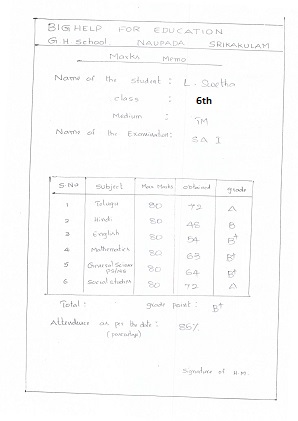 BIGHELP FOR EDUCATION
G.H School NAUPADA SRIKAKULAM
Marks Memo
Name of the student : L. Swetha
class : 6th
Medium : TM
Name of the Examination: SA I
S.No Subject Max Marks obtained grade
1 Telugu 80 72 A
2 Hindi 80 48 B
3 English 80 54 B+
4 Mathematics 80 63 B+
5 General Science PS/NS 80 64 B+
6 Social studies 80 72 A
Total : grade point : B+
Attendence as per the date : 86%
(percentage)
Signature of H.M.